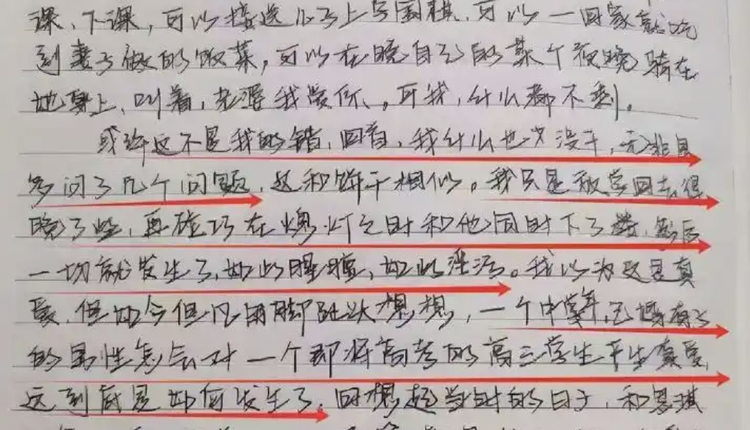 课、下课，可以接送儿子上学围棋，可以一回家就吃
到妻子做的饭菜，可以在晚自习的某个夜晚骑在
她身上，叫着，老婆我爱你、。可我，什么都不剩。
或许这不是我的错，回首，我什么也没干，无非是
多问了几个问题，这和饼干相似。我只是被学回去得
晚了些，再碰巧在熄灯之时和他同时下了楼，然后
一切就发生了，如此腥膻，如此淫污。我以为这是真
爱，但如今但凡用脚趾头想想，一个中年，已婚有子
的男性怎会对一个即将高考的高三学生产生真爱，
这到底是如何发生了。回想起当时的日子，和